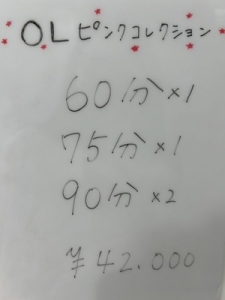 OLピンクコレクション
60分×1
75分×1
90分×2
¥42.000